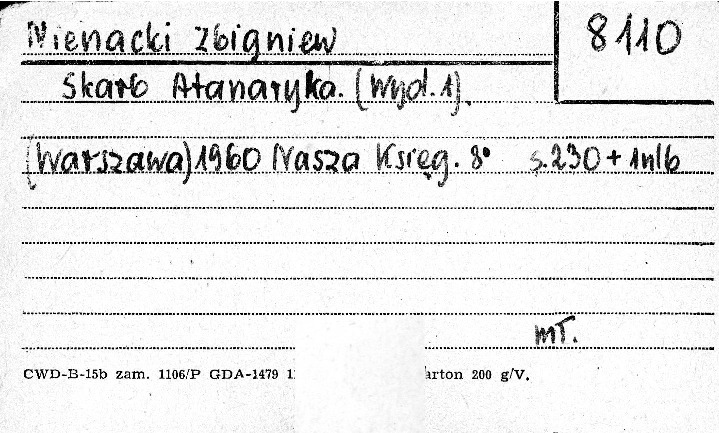 Nienacki Zbigniew
8110
Skarb Atanaryka. (Wyd. 1).
(Warszawa) 1960 Nasza Księg. 8° s. 230 + 1nlb
mT.
CWD-B-15b zam. 1106/P GDA-1479 1 arton 200 g/V.